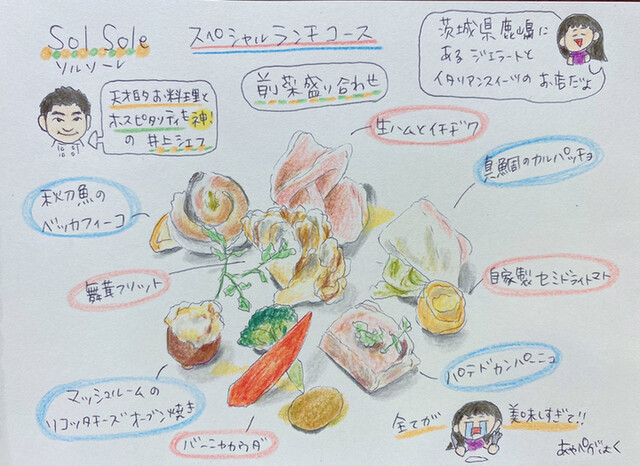 Sol Sole
ソルソーレ
スペシャルランチコース
茨城県鹿嶋に
あるジェラートと
イタリアンスイーツのお店だよ
前菜盛り合わせ
天才的お料理と
ホスピタリティも神!
の井上シェフ
生ハムとイチヂク
真鯛のカルパッチョ
秋刀魚の
ベッカフィーコ
舞茸フリット
自家製セミドライトマト
パテドカンパーニュ
マッシュルームの
リコッタチーズオーブン焼き
バーニャカウダ
全てが
美味しすぎて!!